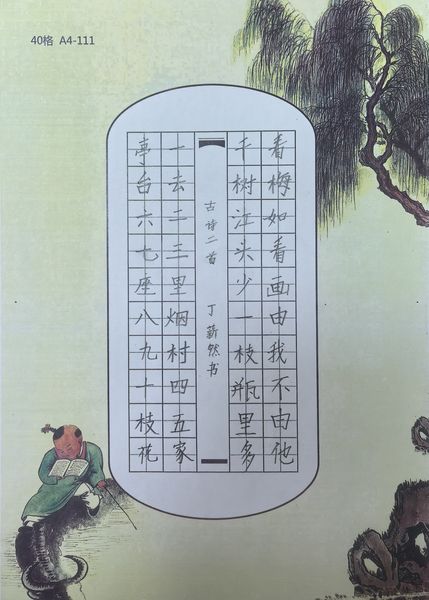 40格 A4-111
看梅如看画由我不由他
千树江头少一枝瓶里多
古诗二首 丁薪然书
一去二三里烟村四五家
亭台六七座八九十枝花